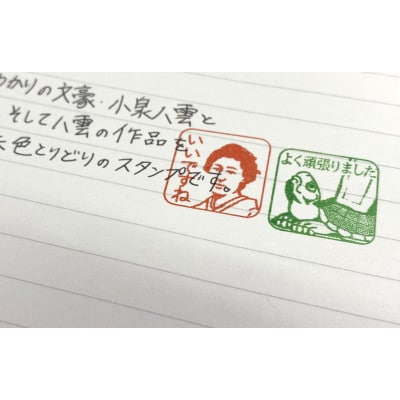 ゆかりの文豪・小泉八雲と
そして八雲の作品を
色とりどりのスタンプです。
いいですね
よく頑張りました